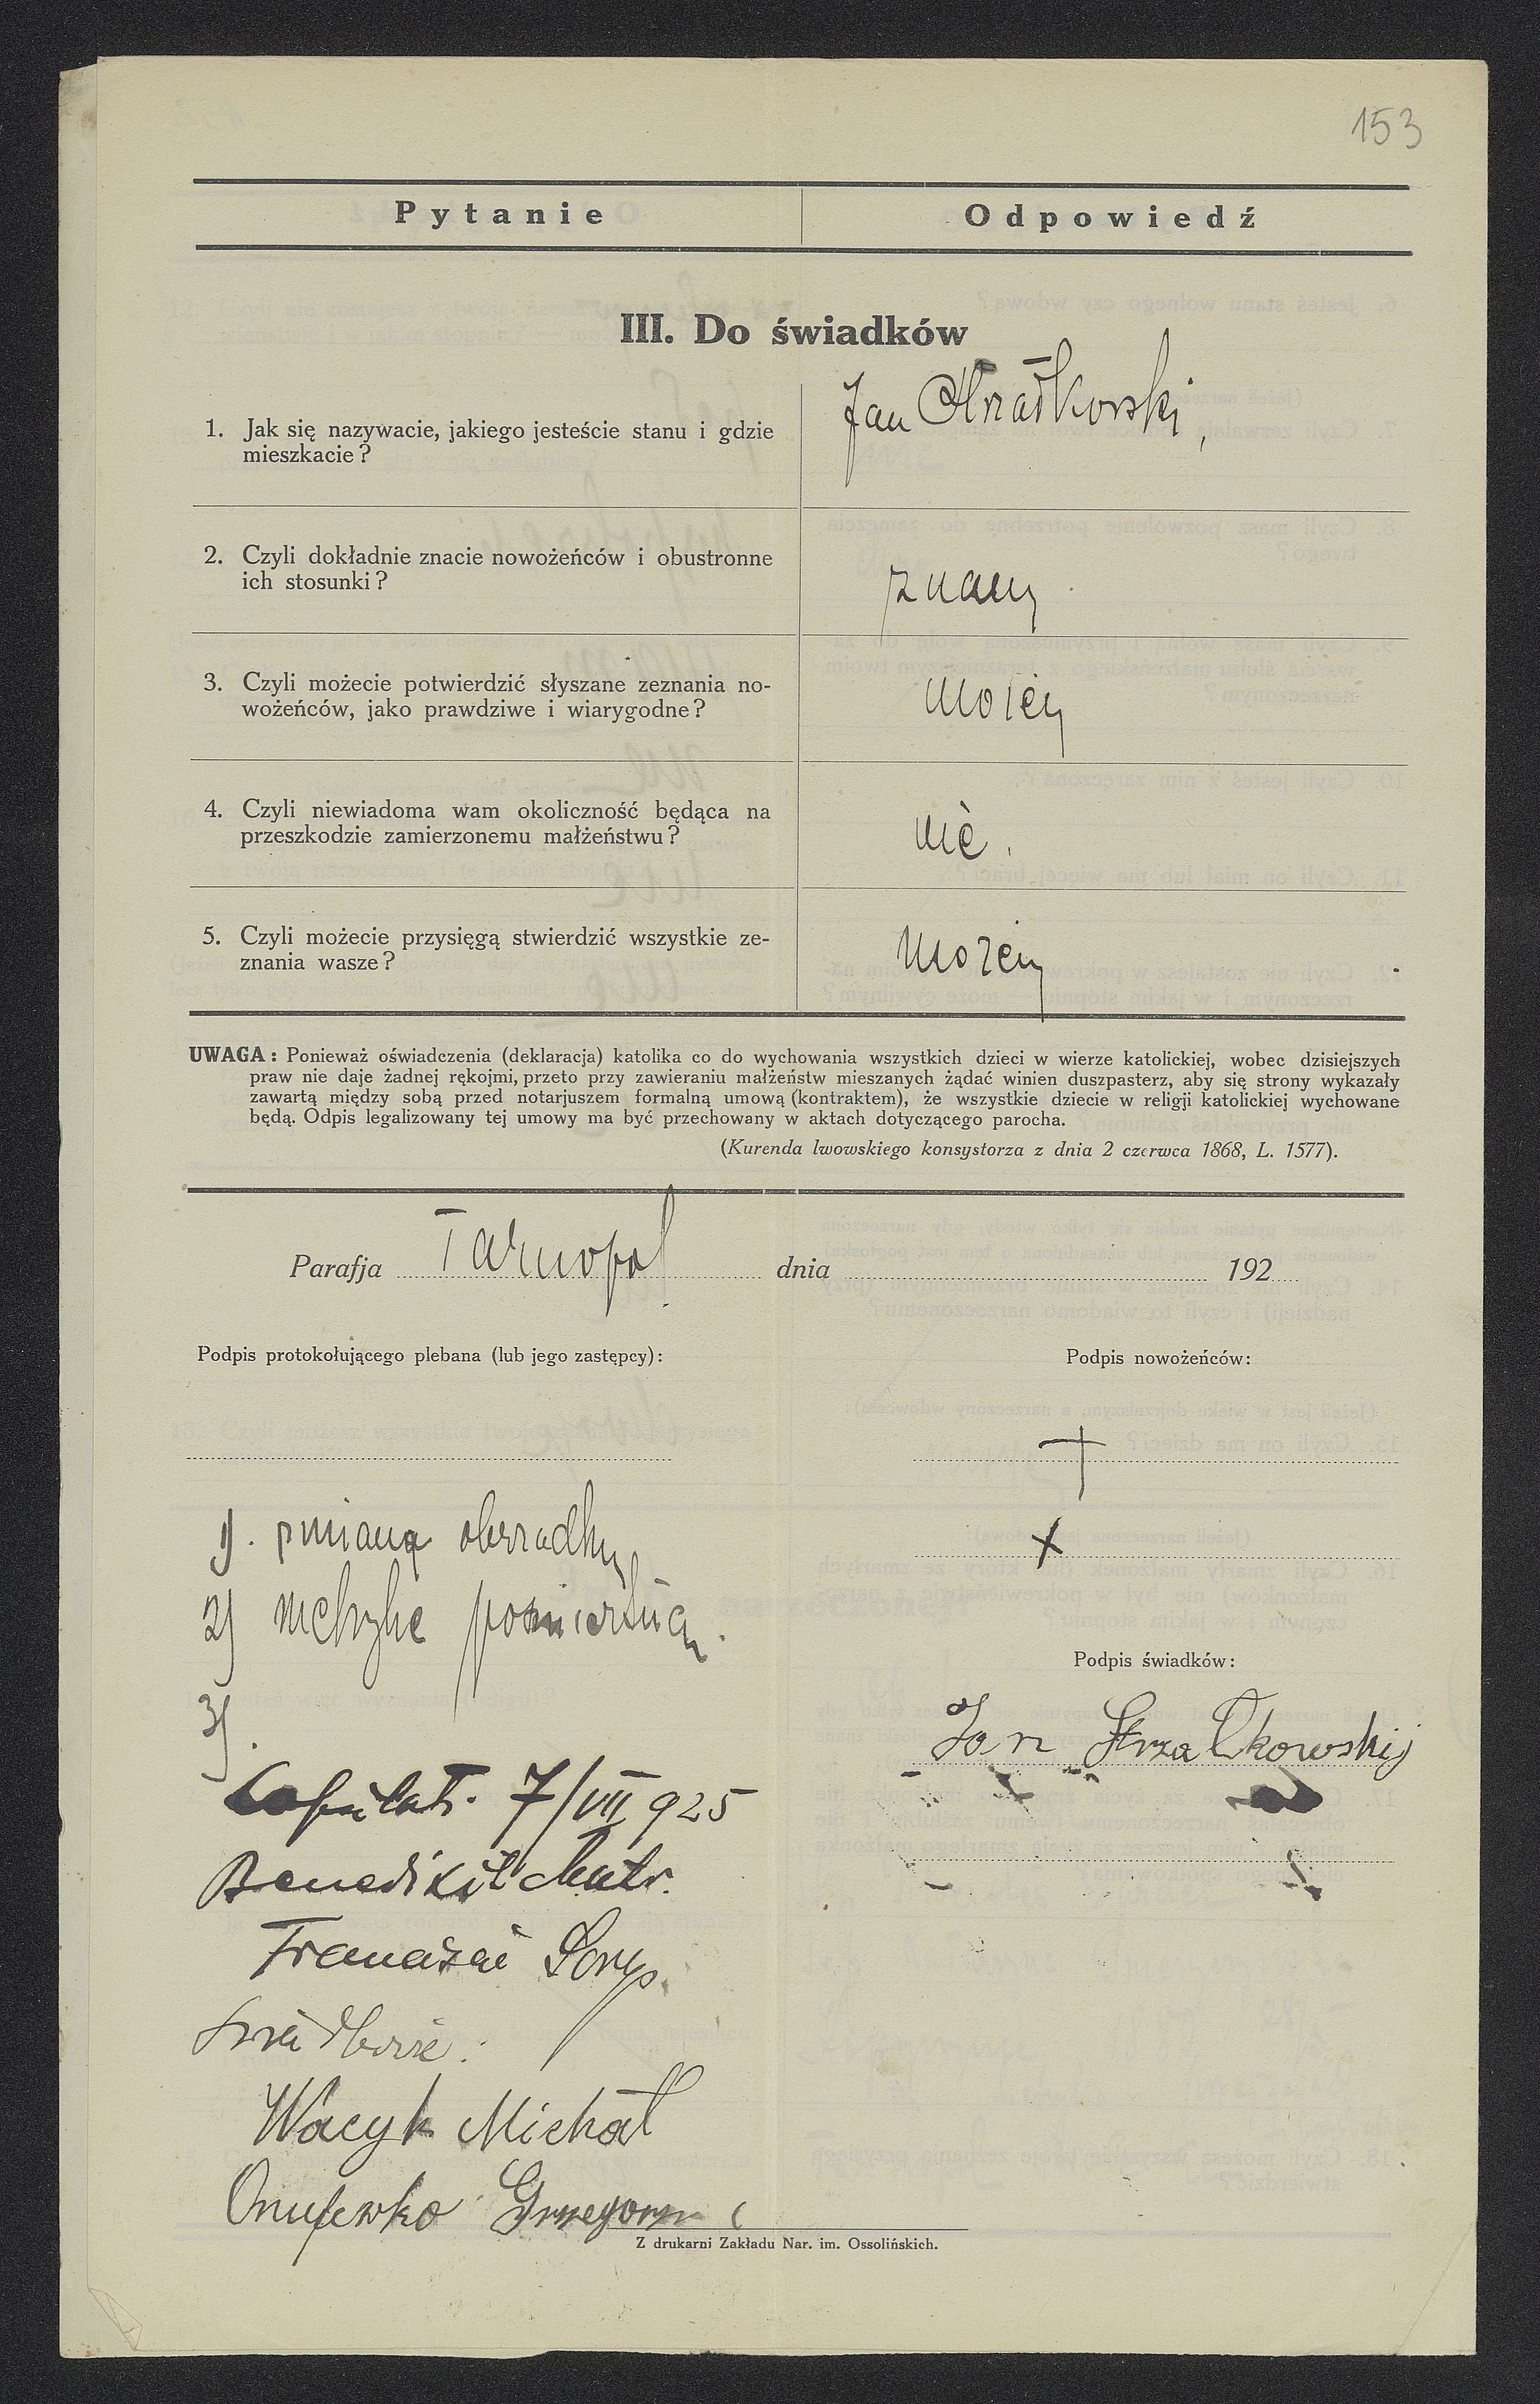 153
Pytanie
Odpowiedź
III. Do świadków
1. Jak się nazywacie, jakiego jesteście stanu i gdzie
mieszkacie?
Jan Strzałkowski,
2. Czyli dokładnie znacie nowożeńców i obustronne
ich stosunki?
znamy
3. Czyli możecie potwierdzić słyszane zeznania no-
wożeńców, jako prawdziwe i wiarygodne?
możem
4. Czyli niewiadoma wam okoliczność będąca na
przeszkodzie zamierzonemu małżeństwu?
nie.
5. Czyli możecie przysięgą stwierdzić wszystkie ze-
znania wasze?
możem
UWAGA: Ponieważ oświadczenia (deklaracja) katolika co do wychowania wszystkich dzieci w wierze katolickiej, wobec dzisiejszych
praw nie daje żadnej rękojmi, przeto przy zawieraniu małżeństw mieszanych żądać winien duszpasterz, aby się strony wykazały
zawartą między sobą przed notarjuszem formalną umową (kontraktem), że wszystkie dziecie w religji katolickiej wychowane
będą. Odpis legalizowany tej umowy ma być przechowany w aktach dotyczącego parocha.
(Kurenda lwowskiego konsystorza z dnia 2 czerwca 1868, L. 1577).
Parafja Tarnopol dnia 192
Podpis protokołującego plebana (lub jego zastępcy):
Podpis nowożeńców:
1). zmianą obrządku
2) metrykę pośmiertną.
3).
Podpis świadków:
Jan Strzałkowskij
Copulati. 7/VII 925
Benedikit
Franciszek
Świadkowie:
Wacyk Michał
Onufewko Grzegorz
Z drukarni Zakładu Nar. im. Ossolińskich.